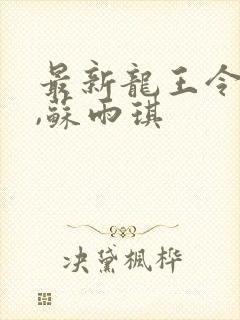 最新龍王令
,蘇雨琪
决黛楓桦